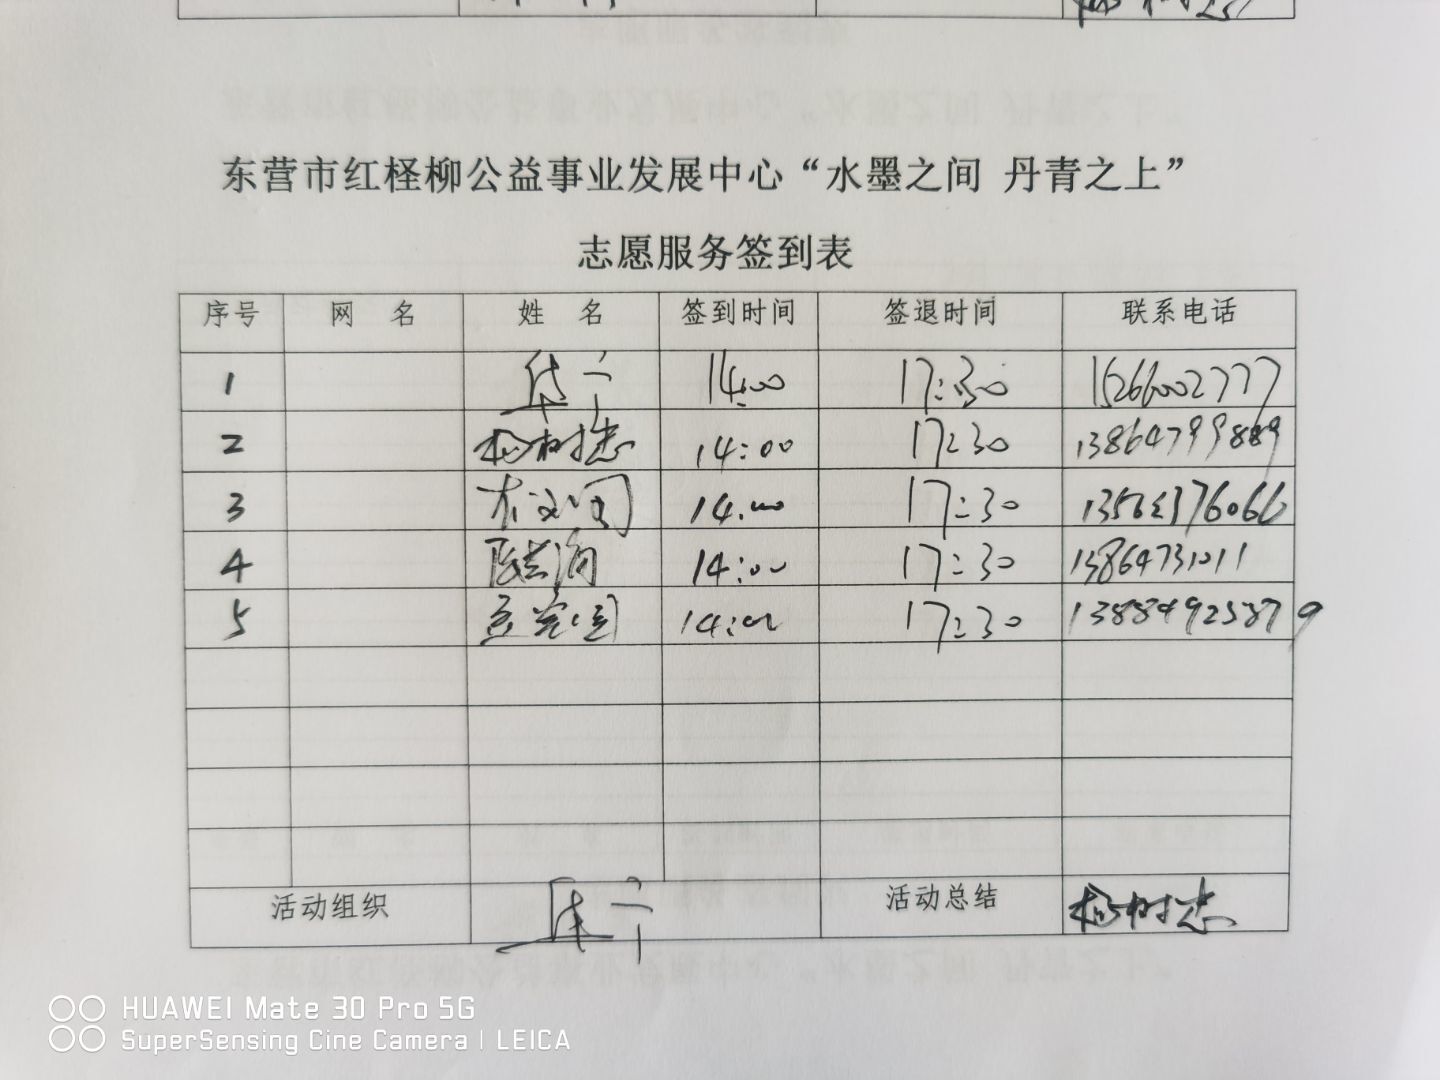 东营市红柽柳公益事业发展中心“水墨之间 丹青之上”
志愿服务签到表
序号 网 名 姓 名 签到时间 签退时间 联系电话
1 14:00 17:30 15266002777
2 杨树志 14:00 17:30 13864799889
3 14:00 17:30
4 14:00 17:30 13864731011
5 14:00 17:30 13884925879
活动组织 活动总结 杨树志
HUAWEI Mate 30 Pro 5G
SuperSensing Cine Camera | LEICA